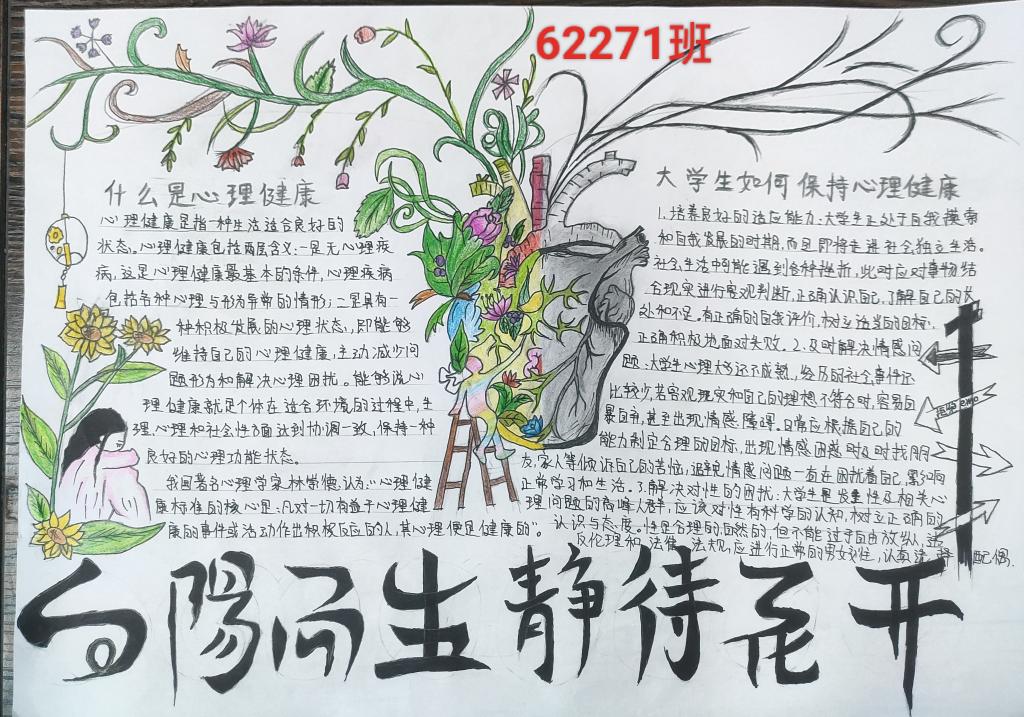 62271班
什么是心理健康
心理健康是指一种生活适合良好的
状态。心理健康包括两层含义:一是无心理疾
病,这是心理健康最基本的条件,心理疾病
包括各种心理与行为异常的情形;二是具有一
种积极发展的心理状态,即能够
维持自己的心理健康,主动减少问
题行为和解决心理困扰。能够说心
理健康就是个体在适合环境的过程中,生
理、心理和社会性方面达到协调一致,保持一种
良好的心理功能状态。
我国著名心理学家林崇德认为:"心理健
康标准的核心是:凡对一切有益于心理健
康的事件或活动作出积极反应的人,其心理便是健康的"。
大学生如何保持心理健康
1.培养良好的适应能力:大学生正处于自我摸索
和自我发展的时期,而且即将走进社会独立生活。
社会生活中可能遇到各种挫折,此时应对事物结
合现实进行客观判断,正确认识自己,了解自己的长
处和不足,有正确的自我评价,树立适当的目标,
正确积极地面对失败。2.及时解决情感问
题:大学生心理大多还不成熟,经历的社会事件还
比较少,若客观现实和自己的理想不符合时,容易自
暴自弃,甚至出现情感障碍。日常应根据自己的
能力制定合理的目标,出现情感困惑时及时找朋
友、家人等倾诉自己的苦恼,避免情感问题一直在困扰着自己,影响
正常学习和生活。3.解决对性的困扰:大学生是发生性及相关心
理问题的高峰人群,应该对性有科学的认知,树立正确的
认识与态度。性是合理的、自然的,但不能过于自由放纵,违
反伦理和法律、法规,应进行正常的男女交往,认真选择 配偶.
emo
向陽而生静待花开